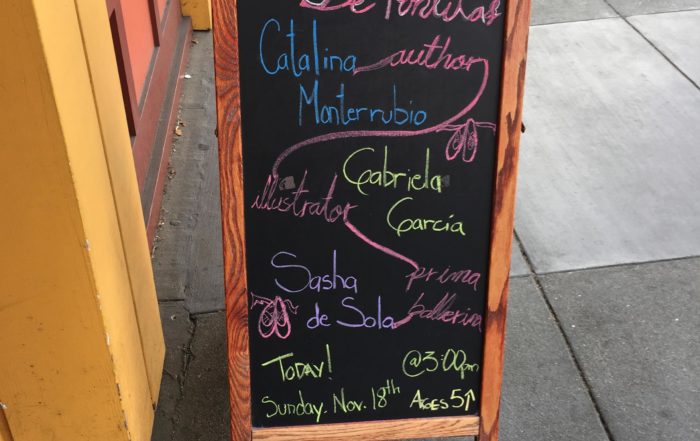 De Puntitas
Catalina author
Monterrubio
Gabriela
illustrator García
Sasha prima
de Sola ballerina
Today! @3:00pm
Sunday. Nov. 18th Ages 5↑